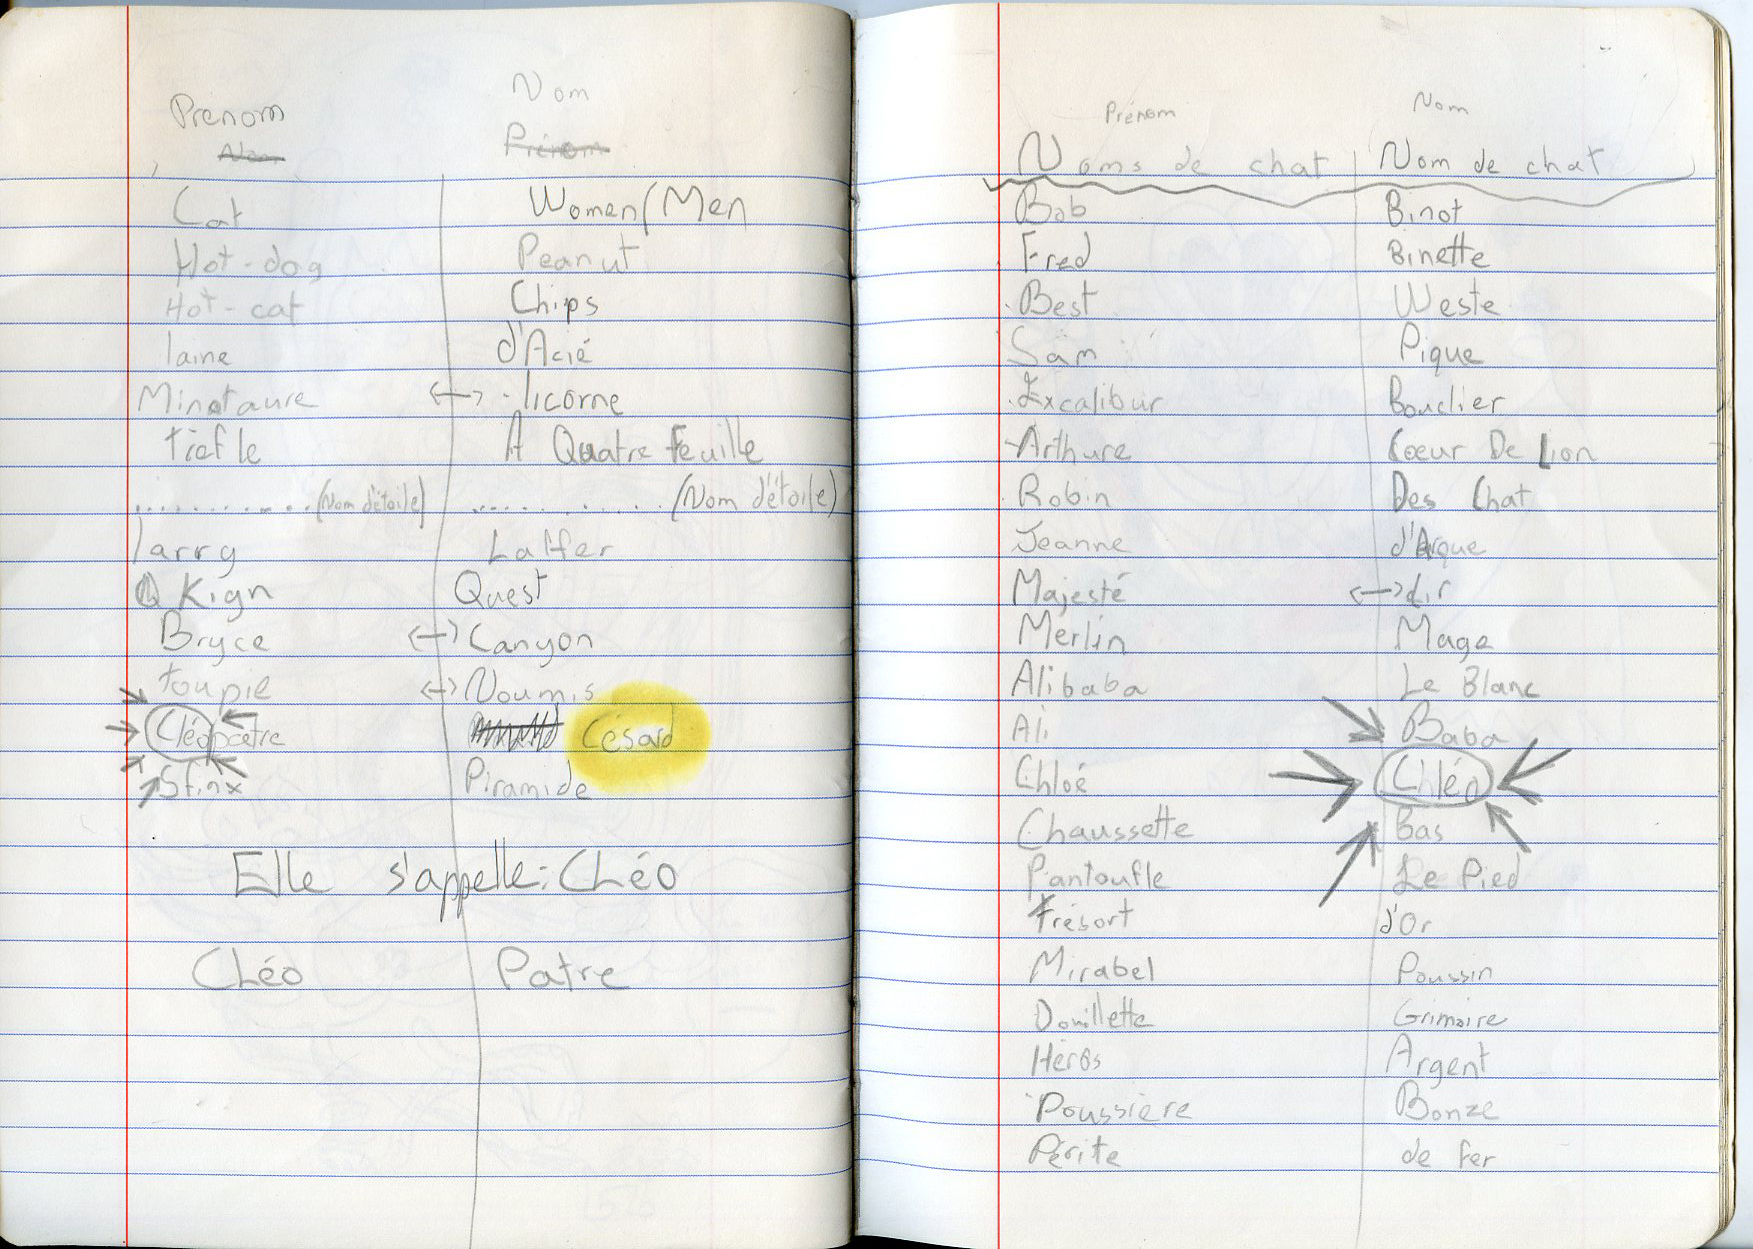 Prenom Nom
Nom Prénom
Cat Women/Men
Hot-dog Peanut
Hot-cat Chips
laine d'Acié
Minotaure ↔ licorne
trefle A Quatre feuille
............(Nom d'étoile) ............(Nom d'étoile)
larry Laffer
Kign Quest
Bryce ↔ Canyon
toupie ↔ Noumis
Cléopatre Césard
Sfinx Piramide
Elle s'appelle: CLéo
CLéo Patre
Prénom Nom
Noms de chat Nom de chat
Bob Binot
Fred Binette
Best Weste
Sam Pique
Excalibur Bouclier
Arthure Coeur De Lion
Robin Des Chat
Jeanne d'Arque
Majesté ↔ Lir
Merlin Mage
Alibaba Le Blanc
Ali Baba
Chloé Chléo
Chaussette Bas
Pantoufle Le Pied
Trésort d'Or
Mirabel Poussin
Douillette Grimoire
Héros Argent
Poussière Bonze
Périte de fer